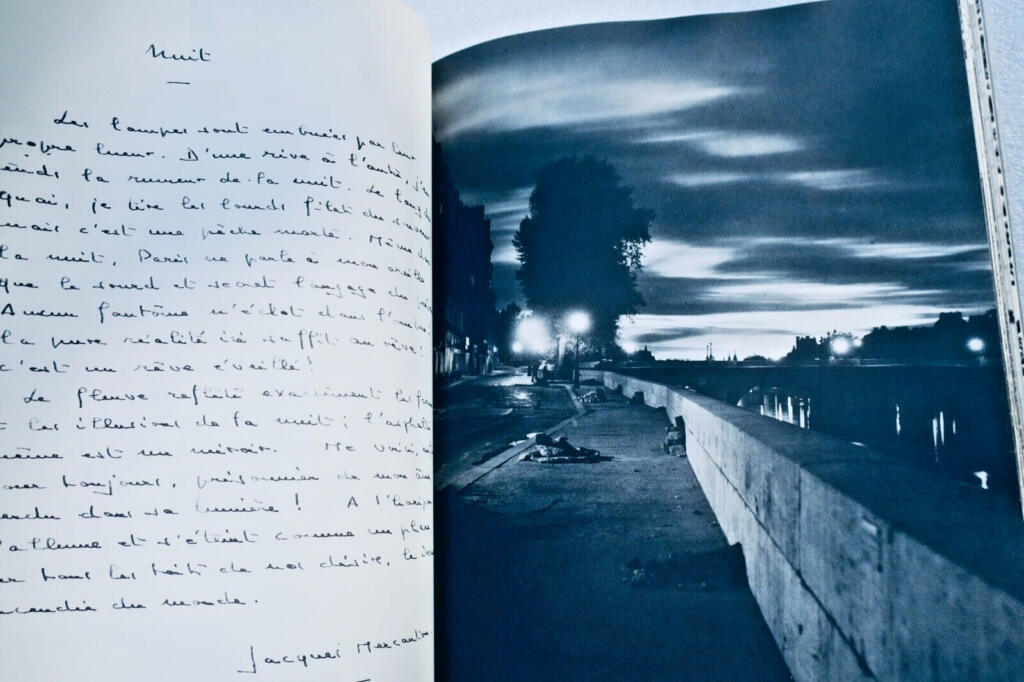 Nuit
Les lampes sont embuées par leur
propre lueur. D'une rive à l'autre, j'en
tends la rumeur de la nuit. Le long du
quai, je tire les lourds filets du
mais c'est une pêche morte. Même
la nuit, Paris ne parle à mon oreille
que le sourd et secret langage du
Aucun fantôme n'éclot dans l'ombre
la pure réalité ici suffit au rêve:
c'est un rêve éveillé!
Le fleuve reflète exactement les
et les illusions de la nuit; l'asphalte
même est un miroir. Me voici,
pour toujours, prisonnier de mon
perdu dans sa lumière! A l'horizon
s'allume et s'éteint comme un
sur tous les toits de nos désirs, le
incendie du monde.
Jacques Mercanton